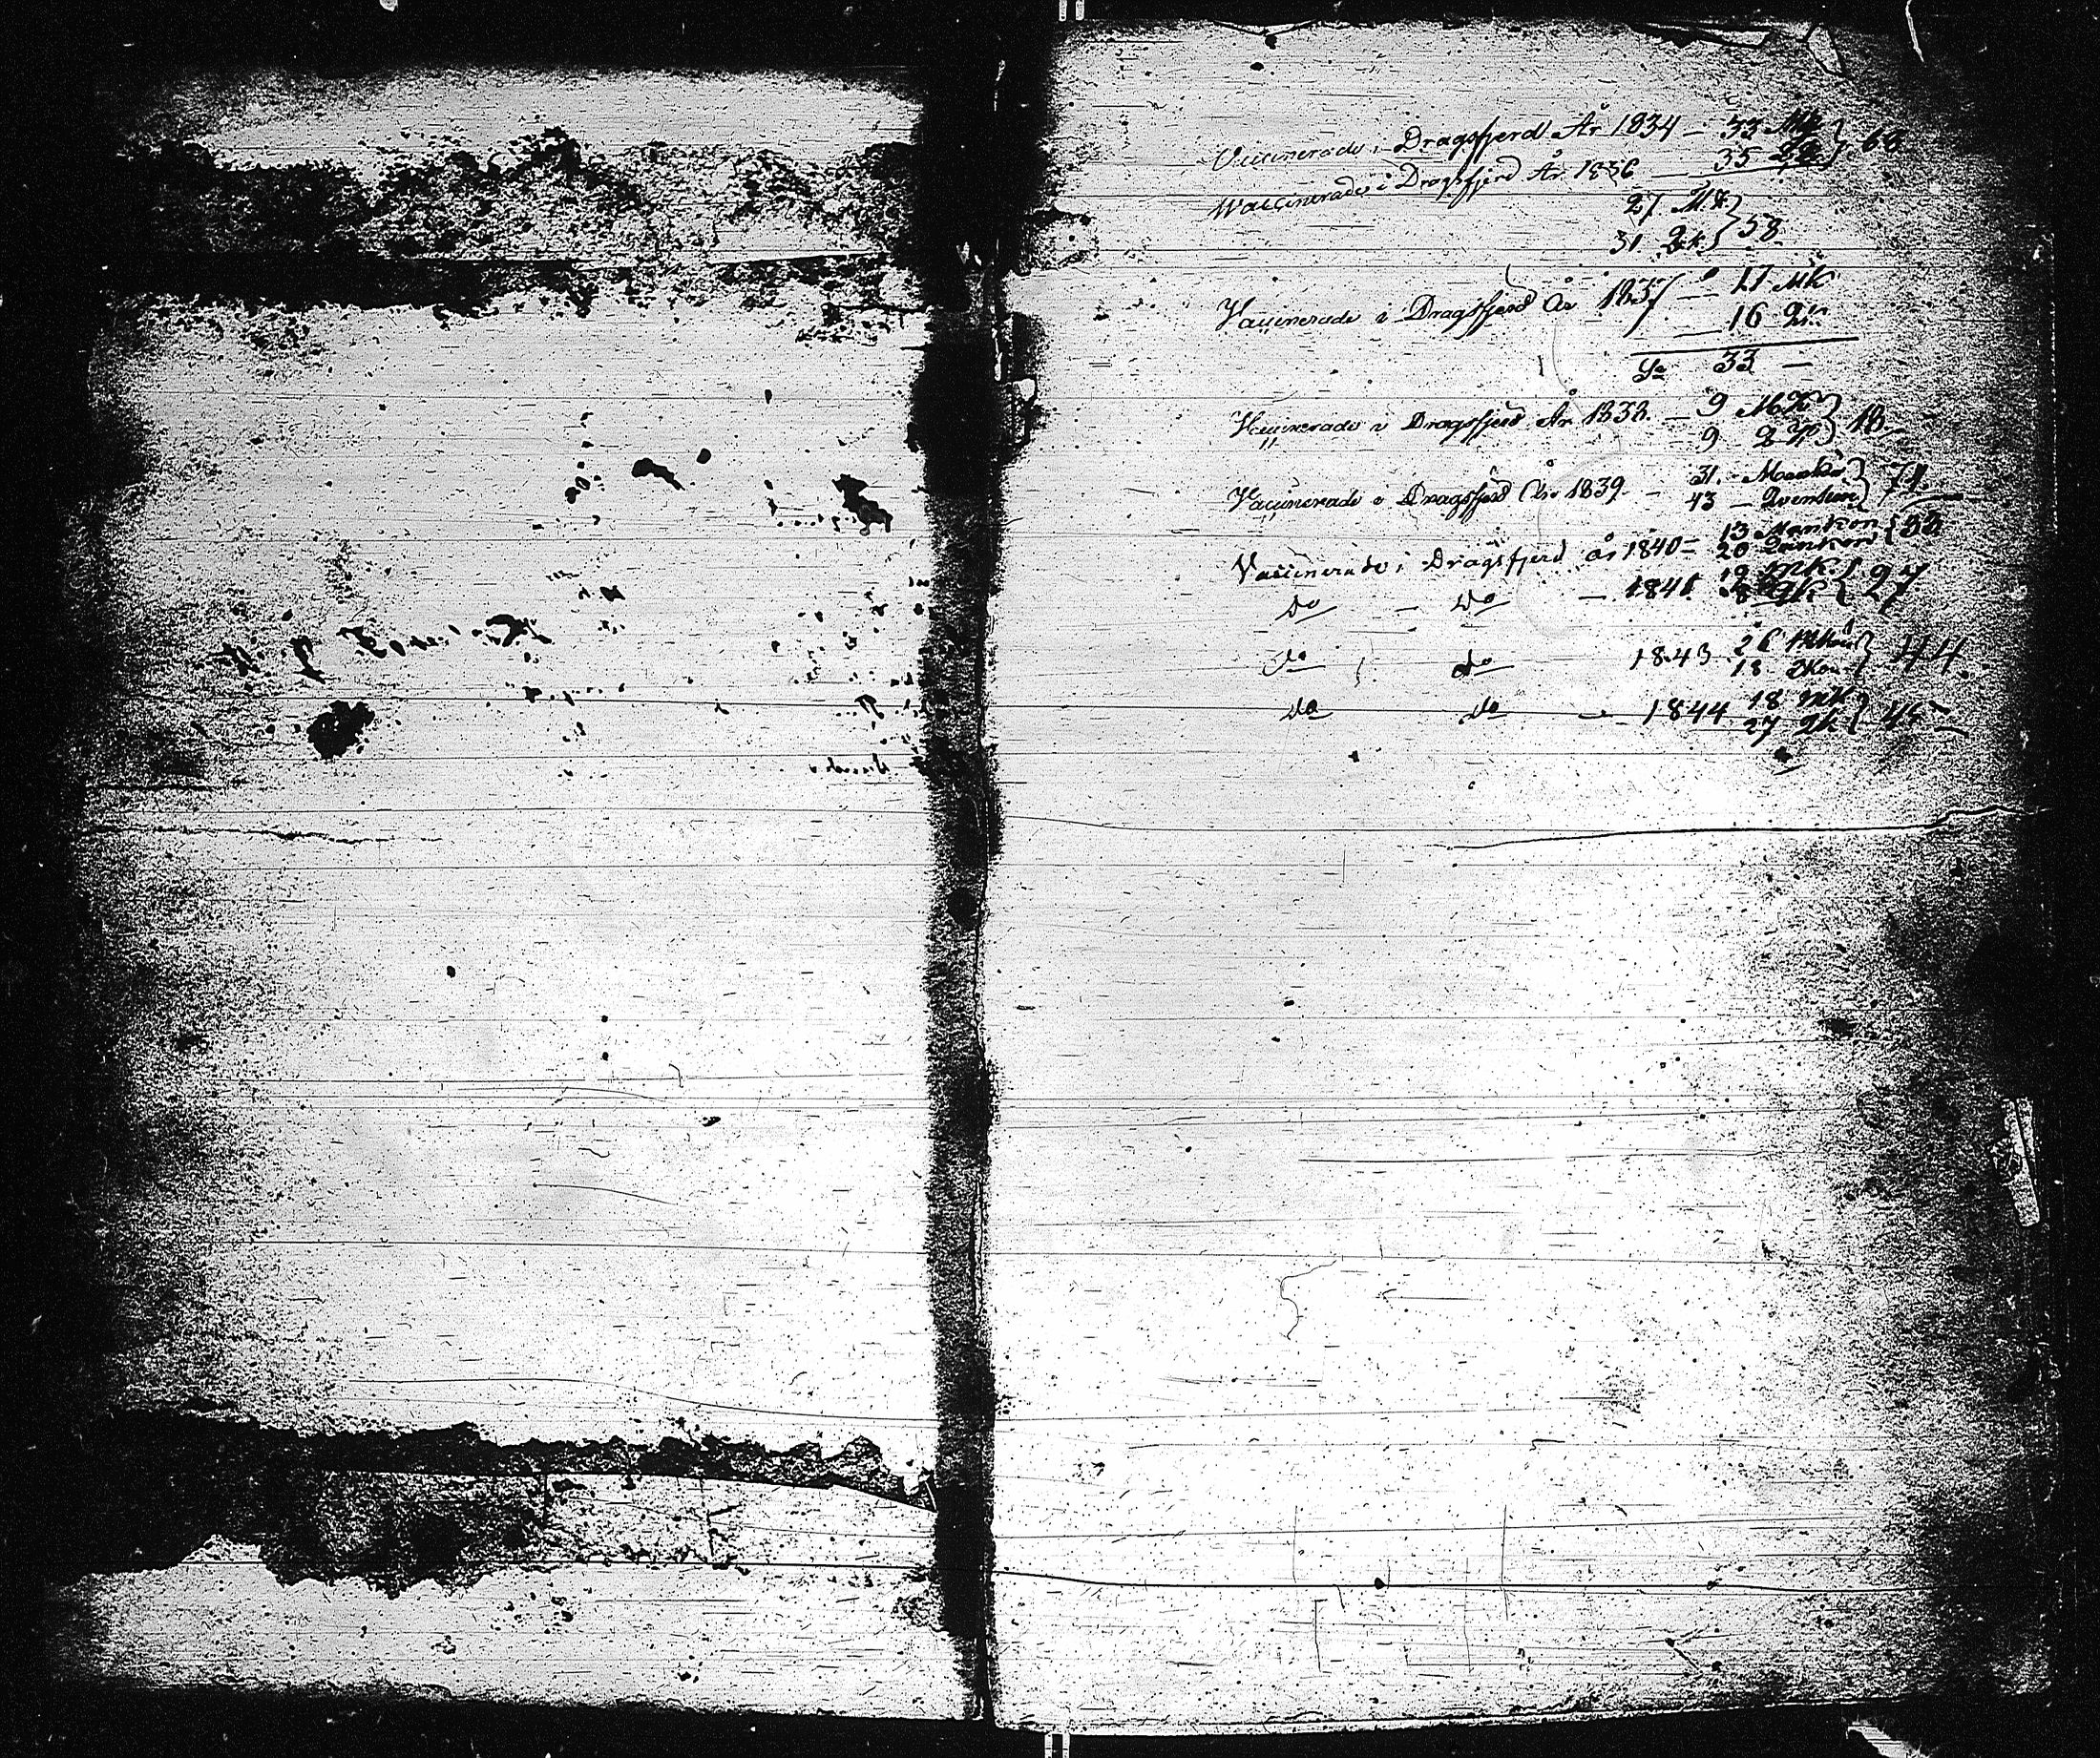 Vaccinerade i Dragsfjerd År 1834 – 33 Mk } 68
35 Qk
Waccinerade i Dragsfjerd År 1836 —
27 Mk } 58
31 Qk
Vaccinerade i Dragsfjerd År 1837 — 17 Mk
16 Qk
Sa 33 —
Vaccinerade i Dragsfjerd År 1838 – 9 Mk } 18
9 Qk
Vaccinerade i Dragsfjerd År 1839 – 31 – Mankön } 74
43 – Qvinkön
Vaccinerade i Dragsfjerd år 1840 = 13 Mankön } 33
20 Qvinkön
Do – Do – 1841 19 Mk } 27
8 Qk
Do Do 1843 26 Mkön } 44
18 Qkön
Do Do – 1844 18 Mk } 45
27 Qk